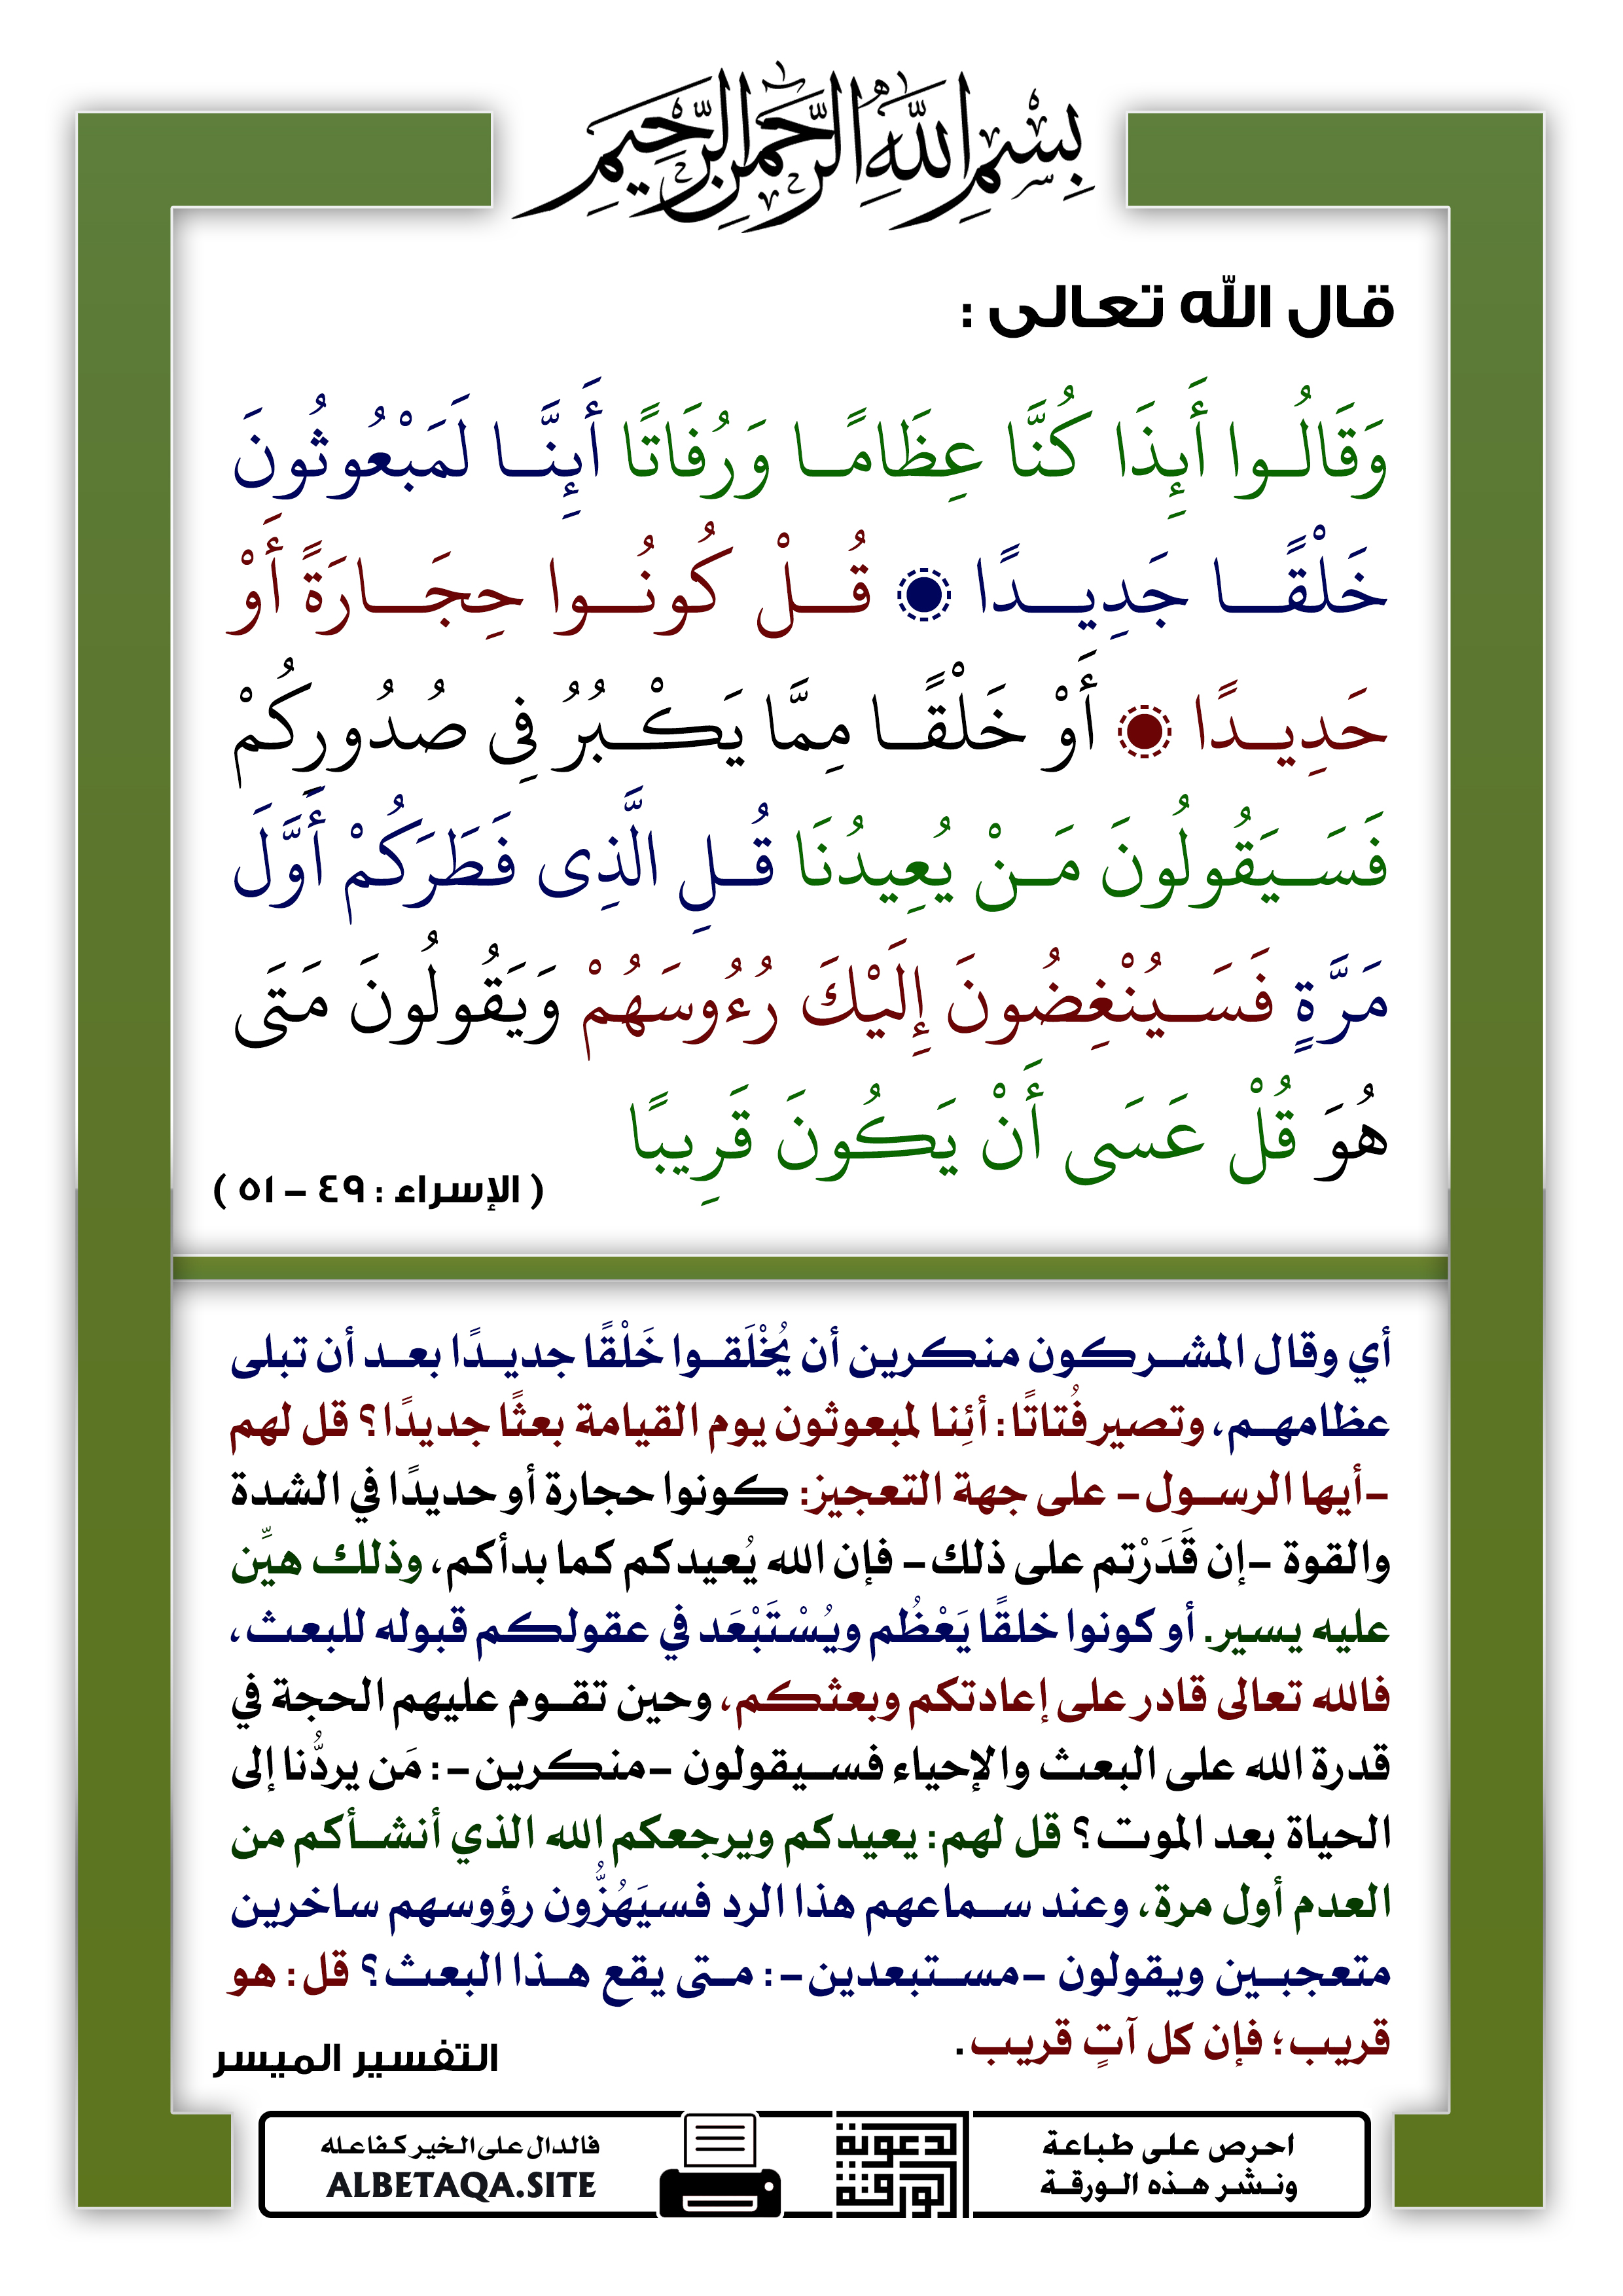 بِسْمِ اللَّهِ الرَّحْمَنِ الرَّحِيمِ
قال الله تعالى :
وَقَالُوا أَإِذَا كُنَّا عِظَامًا وَرُفَاتًا أَإِنَّا لَمَبْعُوثُونَ
خَلْقًا جَدِيدًا ۞ قُلْ كُونُوا حِجَارَةً أَوْ
حَدِيدًا ۞ أَوْ خَلْقًا مِمَّا يَكْبُرُ فِى صُدُورِكُمْ
فَسَيَقُولُونَ مَنْ يُعِيدُنَا قُلِ الَّذِى فَطَرَكُمْ أَوَّلَ
مَرَّةٍ فَسَيُنْغِضُونَ إِلَيْكَ رُءُوسَهُمْ وَيَقُولُونَ مَتَى
هُوَ قُلْ عَسَى أَنْ يَكُونَ قَرِيبًا
( الإسراء : ٤٩ – ٥١ )
أي وقال المشركون منكرين أن يُخْلَقوا خَلْقًا جديدًا بعد أن تبلى
عظامهم، وتصير فُتاتًا: أئِنا لمبعوثون يوم القيامة بعثًا جديدًا؟ قل لهم
-أيها الرسول- على جهة التعجيز: كونوا حجارة أو حديدًا في الشدة
والقوة -إن قَدَرْتم على ذلك- فإن الله يُعيدكم كما بدأكم، وذلك هيِّن
عليه يسير. أو كونوا خلقًا يَعْظُم ويُسْتَبْعَد في عقولكم قبوله للبعث،
فالله تعالى قادر على إعادتكم وبعثكم، وحين تقوم عليهم الحجة في
قدرة الله على البعث والإحياء فسيقولون -منكرين-: مَن يردُّنا إلى
الحياة بعد الموت؟ قل لهم: يعيدكم ويرجعكم الله الذي أنشأكم من
العدم أول مرة، وعند سماعهم هذا الرد فسيَهُزُّون رؤوسهم ساخرين
متعجبين ويقولون -مستبعدين-: متى يقع هذا البعث؟ قل: هو
قريب؛ فإن كل آتٍ قريب.
التفسير الميسر
احرص على طباعة
ونشر هذه الورقة
الورقة الدعوية
فالدال على الخير كفاعله
ALBETAQA.SITE